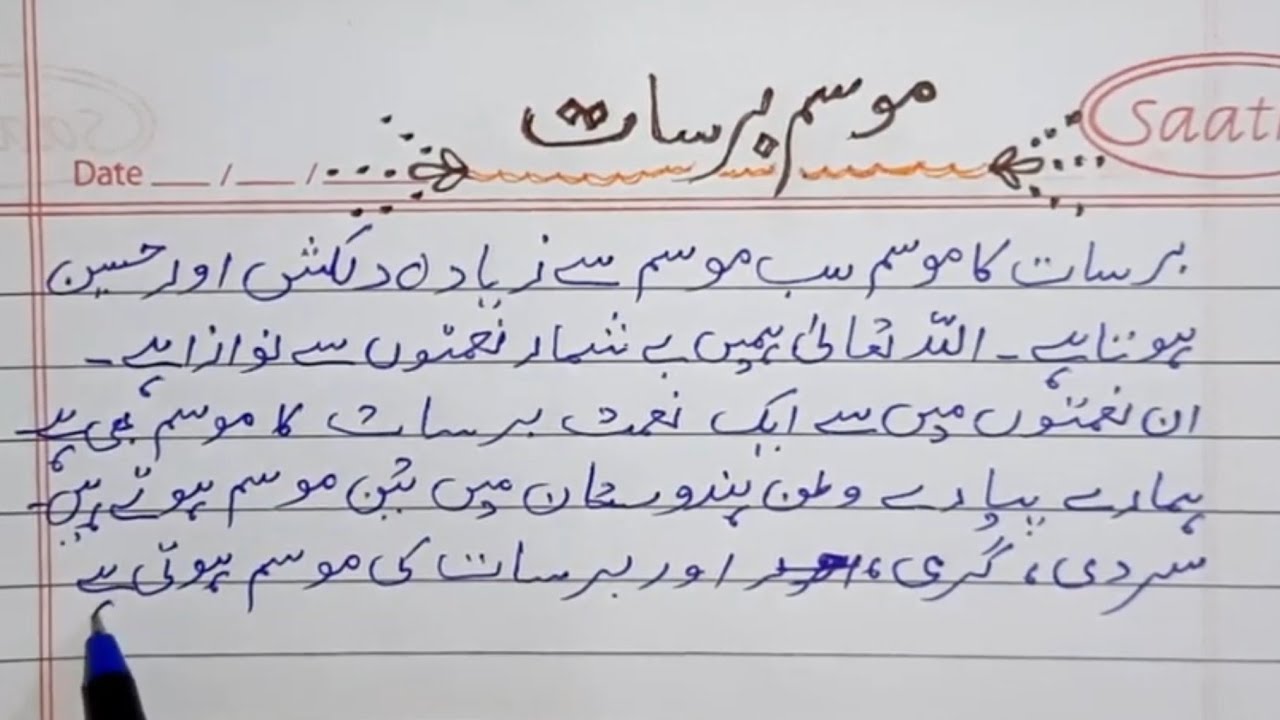 موسم برسات
Saat
Date __ / __ / __
برسات کا موسم سب موسم سے زیادہ دلکش اور حسین
ہوتا ہے۔ اللہ تعالیٰ ہمیں بے شمار نعمتوں سے نوازا ہے۔
ان نعمتوں میں سے ایک نعمت برسات کا موسم بھی ہے
ہمارے پیارے وطن ہندوستان میں تین موسم ہوتے ہیں۔
سردی، گرمی، اور برسات کی موسم ہوتی ہے